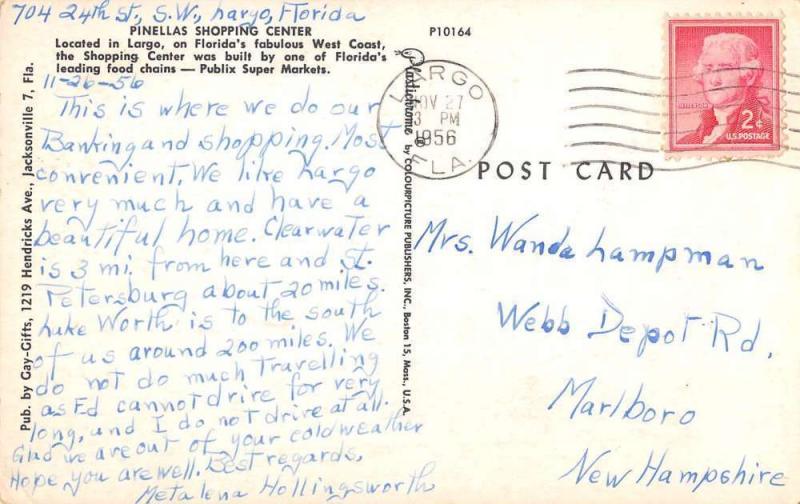 704 24th St., S.W., Largo, Florida
PINELLAS SHOPPING CENTER
Located in Largo, on Florida's fabulous West Coast,
the Shopping Center was built by one of Florida's
leading food chains — Publix Super Markets.
P10164
11-26-56
This is where we do our
Banking and shopping. Most
convenient. We like Largo
very much and have a
beautiful home. Clearwater
is 3 mi. from here and St.
Petersburg about 20 miles.
Lake Worth is to the south
of us around 200 miles. We
do not do much travelling
as Ed cannot drive for very
long, and I do not drive at all.
Glad we are out of your cold weather
Hope you are well. Best regards,
Metalena Hollingsworth
Pub. by Gay-Gifts, 1219 Hendricks Ave., Jacksonville 7, Fla.
Plastichrome ® by COLOURPICTURE PUBLISHERS, INC., Boston 15, Mass., U.S.A.
LARGO
NOV 27
3 PM
1956
FLA.
2¢
U.S. POSTAGE
POST CARD
Mrs. Wanda Lampman
Webb Depot Rd.
Marlboro
New Hampshire